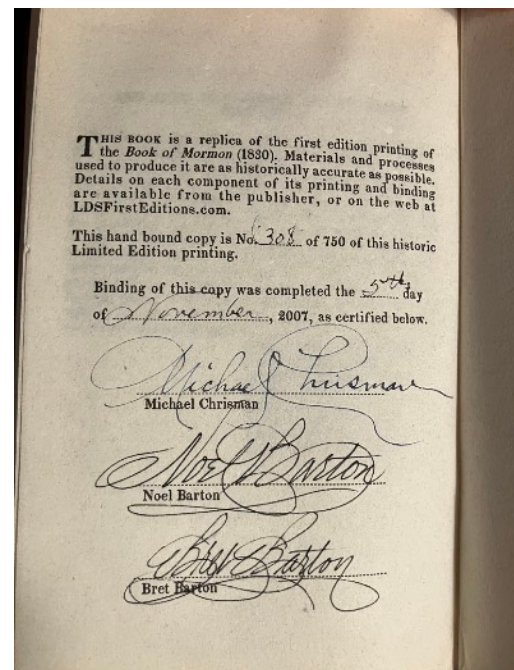 THIS BOOK is a replica of the first edition printing of
the Book of Mormon (1830). Materials and processes
used to produce it are as historically accurate as possible.
Details on each component of its printing and binding
are available from the publisher, or on the web at
LDSFirstEditions.com.
This hand bound copy is No. 308 of 750 of this historic
Limited Edition printing.
Binding of this copy was completed the 5th day
of November, 2007, as certified below.
Michael Chrisman
Michael Chrisman
Noel Barton
Noel Barton
Bret Barton
Bret Barton